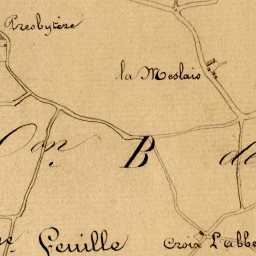 Presbytère
la Meslais
on B de
Feuille
Croix L'abbé